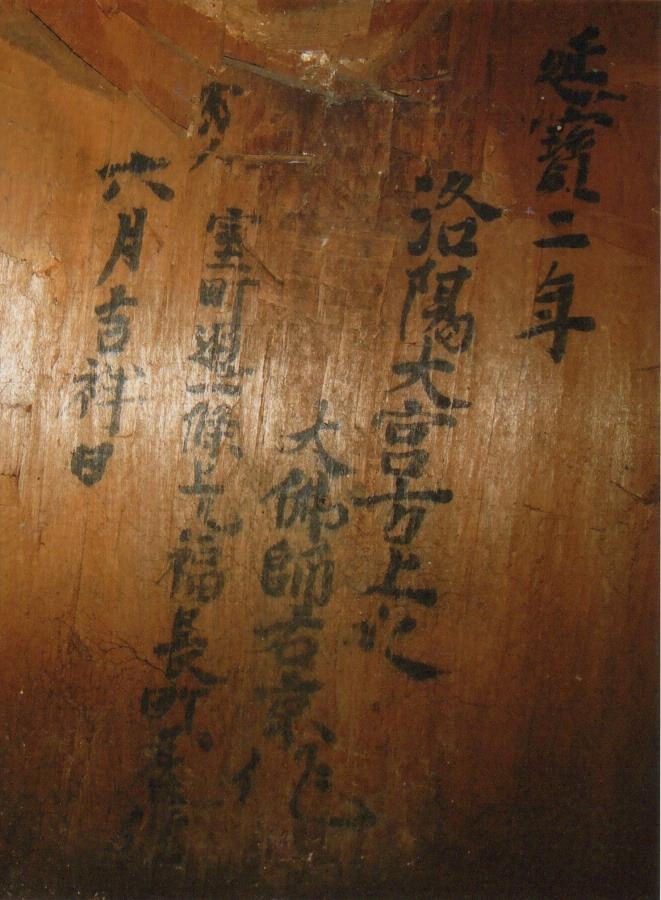 延寶二年
洛陽大宮方上ル
大佛師右京作
室町通一條上ル福長町
六月吉祥日